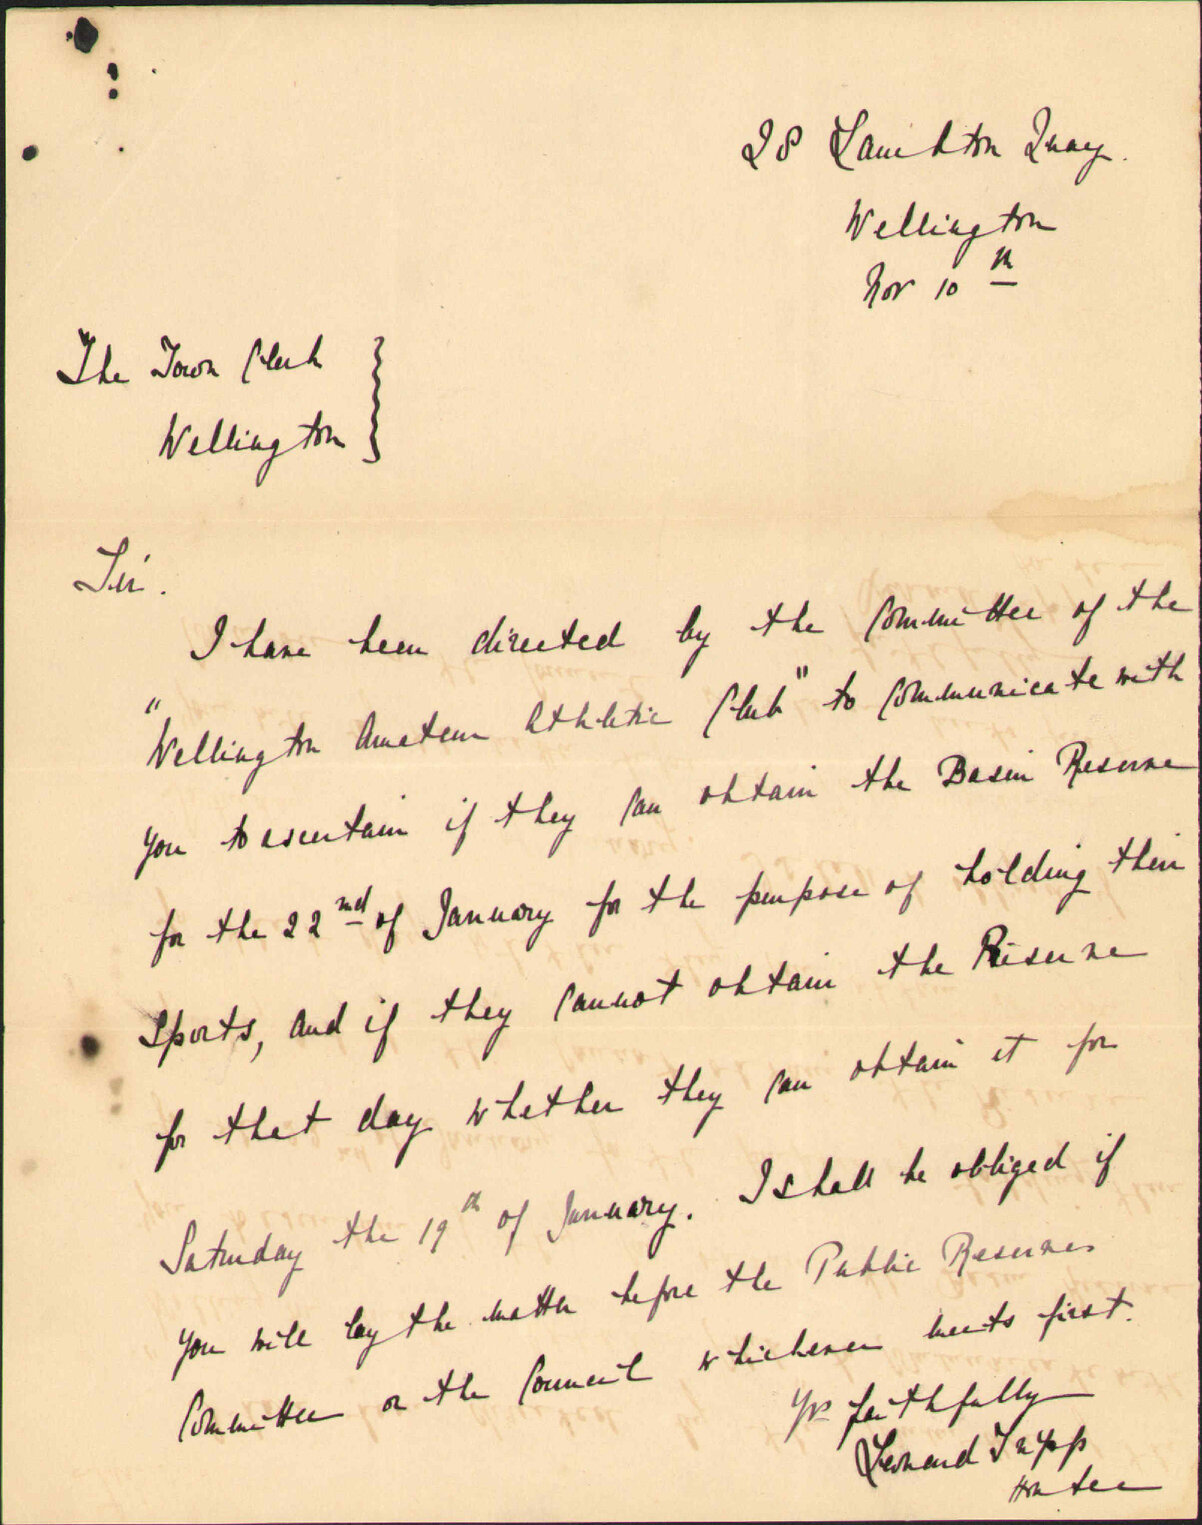 28 Lambton Quay.
Wellington
Nov 10th
The Town Clerk
Wellington
Sir.
I have been directed by the Committee of the
"Wellington Amateur Athletic Club" to communicate with
you to ascertain if they can obtain the Basin Reserve
for the 22nd of January for the purpose of holding their
Sports, and if they cannot obtain the Reserve
for that day whether they can obtain it for
Saturday the 19th of January. I shall be obliged if
you will lay the matter before the Public Reserves
Committee or the Council whichever meets first.
Yrs faithfully
Leonard Tripp
Hon Sec